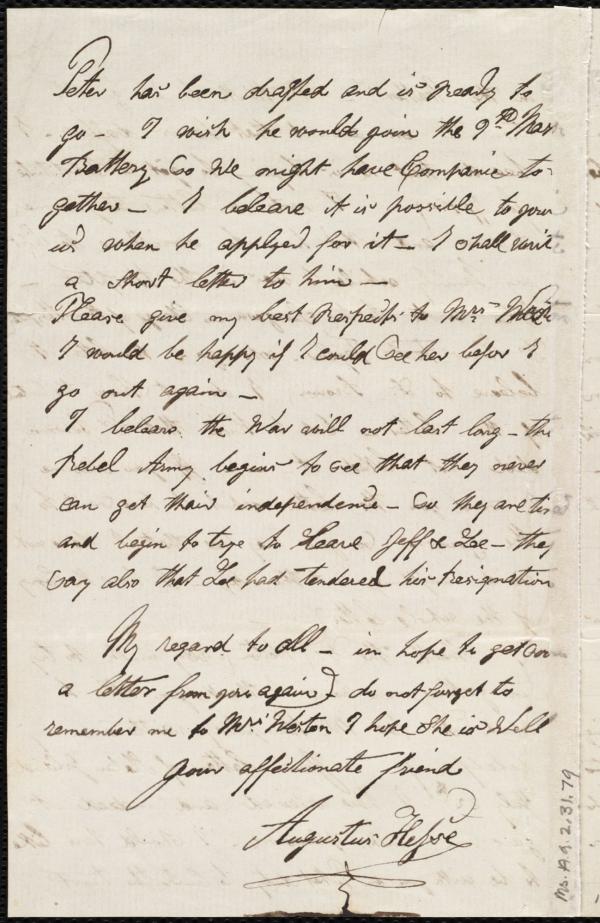 Peter has been drafted and is ready to
go - I wish he would join the 9th Mas
Battery So we might have Companie to-
gether - I beleave it is possible to
us when he applyed for it - I shall
a short letter to him -
Please give my best Respects to Mrs
I would be happy if I could See her befor I
go out again -
I beleave the War will not last long - the
Rebel Army begins to See that they never
can get thair independence - So they are
and begin to trye to Leave Jeff & Lee - they
Say also that Lee had tendered his Resignation
My regard to all - in hope to get
a letter from you again I do not forget to
remember me to Mrs Weston I hope She is Well
your affectionate friend
Augustus Hesse
Ms. A.9.2.31.79